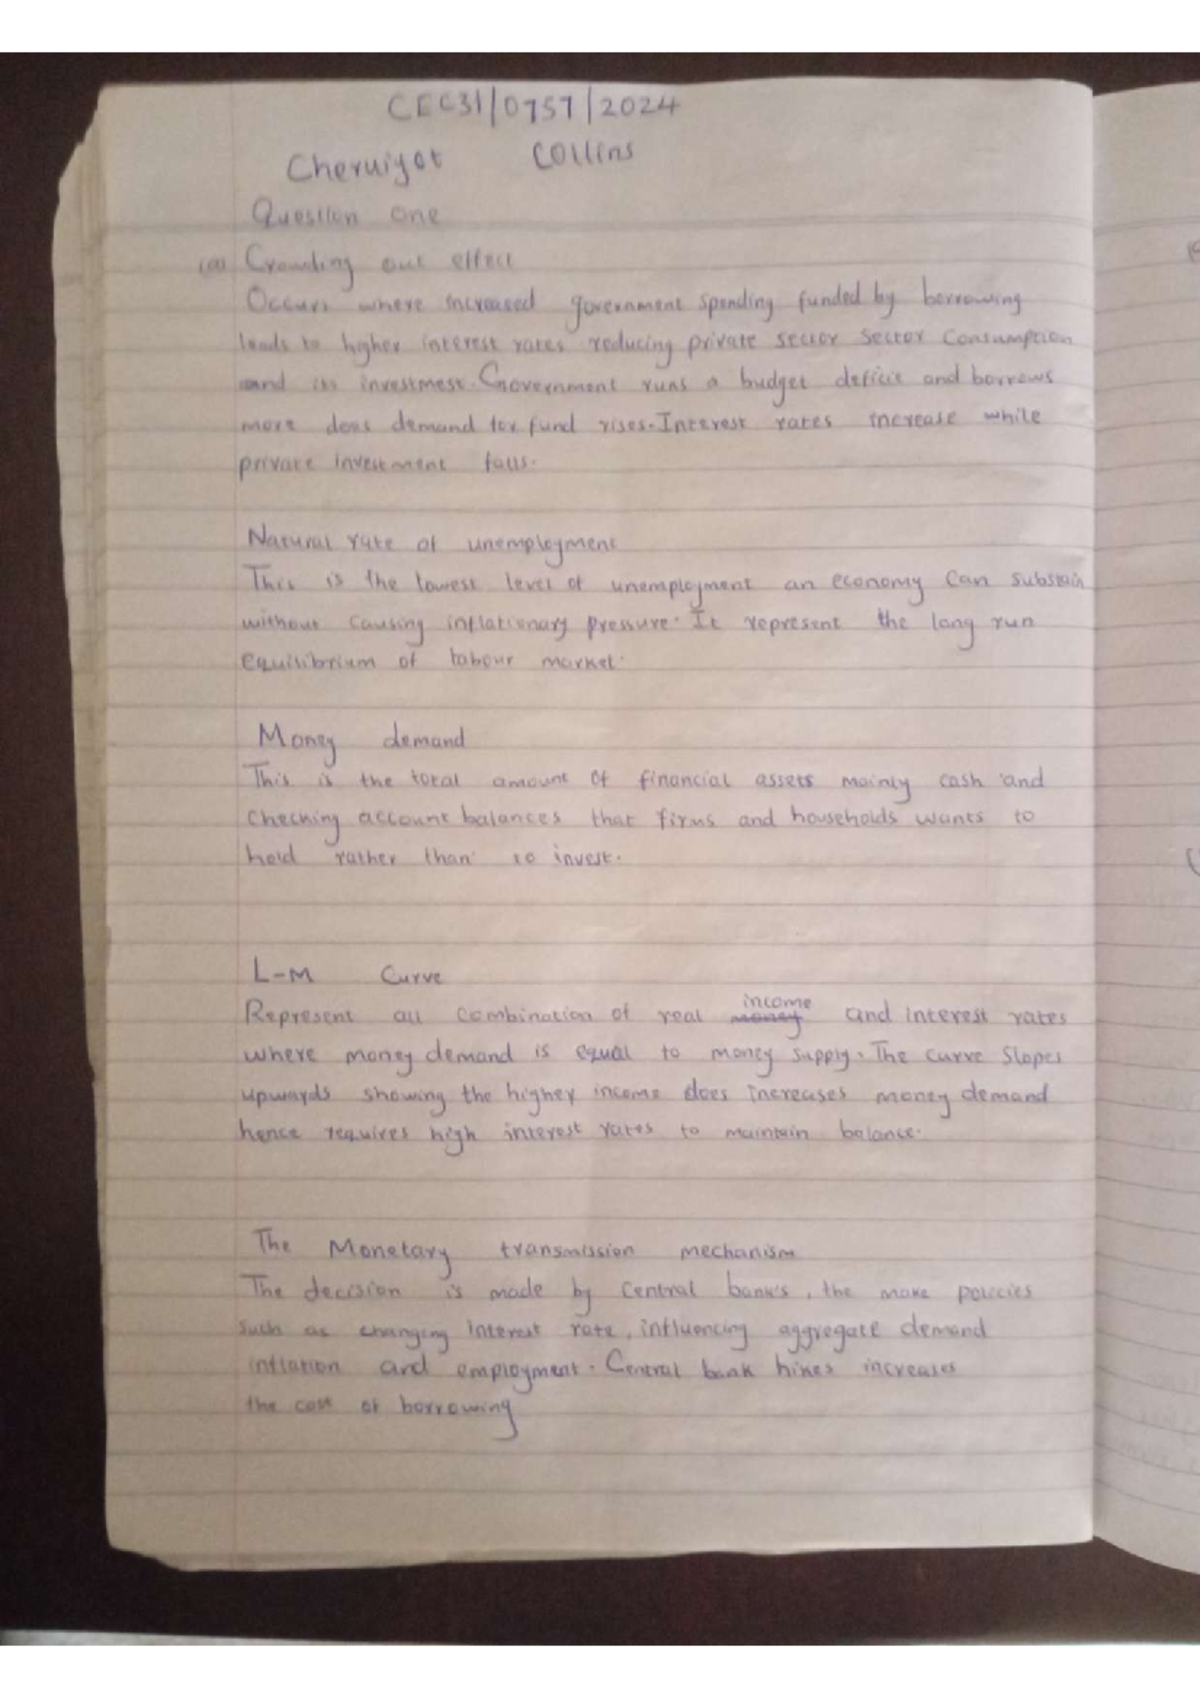 CEC31/0757/2024
Cheruiyot Collins
Question one
(a) Crowding out effect
Occurs where increased government spending funded by borrowing
leads to higher interest rates reducing private sector sector consumption
and its investmest. Government runs a budget deficit and borrows
more does demand for fund rises. Interest rates increase while
private investment falls.
Natural rate of unemployment
This is the lowest level of unemployment an economy can substain
without causing inflationary pressure. It represent the long run
equilibrium of labour market.
Money demand
This is the total amount of financial assets mainly cash and
checking account balances that firms and households wants to
hold rather than to invest.
L-M Curve
Represent all combination of real money income and interest rates
where money demand is equal to money supply. The curve slopes
upwards showing the higher income does increases money demand
hence requires high interest rates to maintain balance.
The Monetary transmission mechanism
The decision is made by central bank's, the make policies
such as changing interest rate, influencing aggregate demand
inflation and employment. Central bank hikes increases
the cost of borrowing